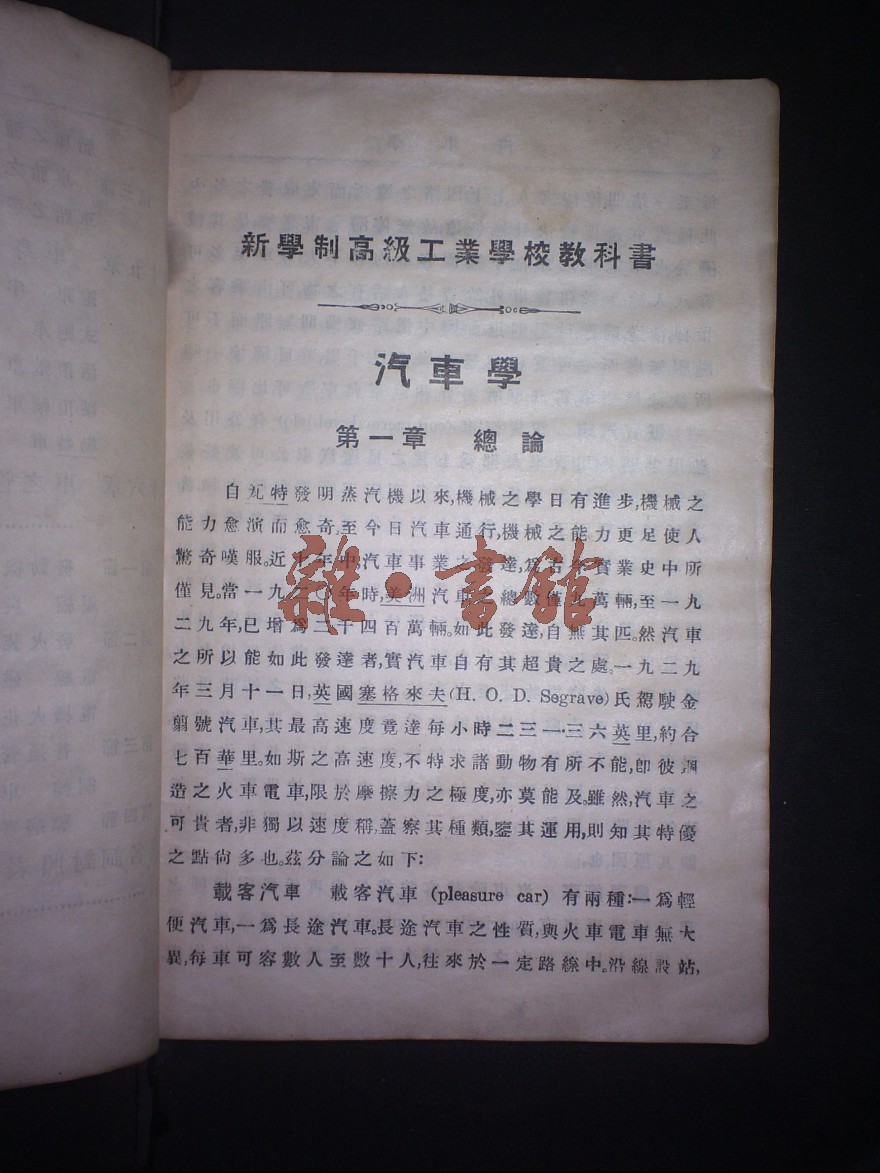 新學制高級工業學校教科書
汽車學
第一章 總論
自瓦特發明蒸汽機以來,機械之學日有進步,機械之
能力愈演而愈奇,至今日汽車通行,機械之能力更足使人
驚奇嘆服。近十年中,汽車事業之發達,爲古今實業史中所
僅見。當一九二〇年時,美洲汽車總數僅九萬輛,至一九
二九年,已增爲二千四百萬輛。如此發達,自無其匹。然汽車
之所以能如此發達者,實汽車自有其超貴之處。一九二九
年三月十一日,英國塞格來夫(H. O. D. Segrave)氏駕駛金
翦號汽車,其最高速度竟達每小時二三一·三六英里,約合
七百華里。如斯之高速度,不特求諸動物有所不能,卽彼鋼
造之火車電車,限於摩擦力之極度,亦莫能及。雖然,汽車之
可貴者,非獨以速度稱,蓋察其種類,鑒其運用,則知其特優
之點尙多也。茲分論之如下:
載客汽車 載客汽車 (pleasure car) 有兩種:一爲輕
便汽車,一爲長途汽車。長途汽車之性質,與火車電車無大
異,每車可容數人至數十人,往來於一定路線中。沿線設站,
雜·書館